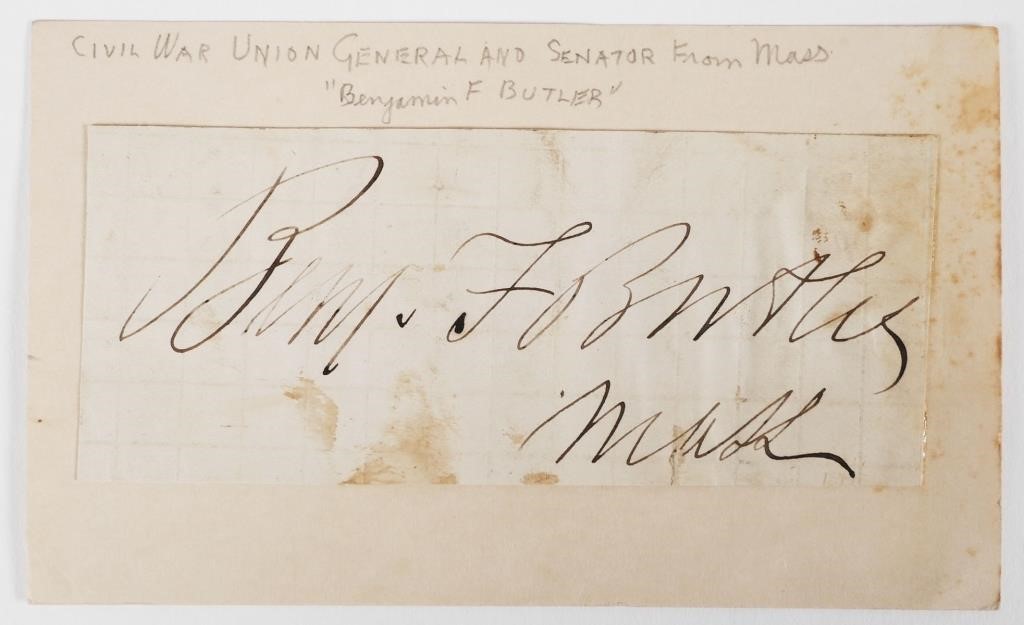 CIVIL WAR UNION GENERAL AND SENATOR From Mass.
"Benjamin F BUTLER"
Benj. F Butler
Mass